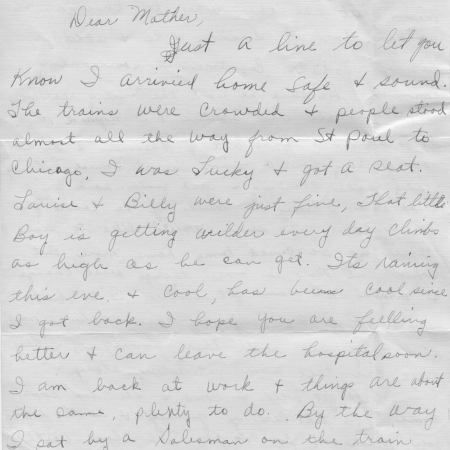 Dear Mother,
Just a line to let you
Know I arrivied home safe & sound.
The trains were crowded & people stood
almost all the way from St Paul to
Chicago, I was Lucky & got a seat.
Louise & Billy were just fine, That little
Boy is getting wilder every day climbs
as high as he can get. Its raining
this eve. & cool, has been cool since
I got back. I hope you are fulling
better & can leave the hospital soon.
I am back at work & things are about
the same, plenty to do. By the way
I sat by a Salesman on the train